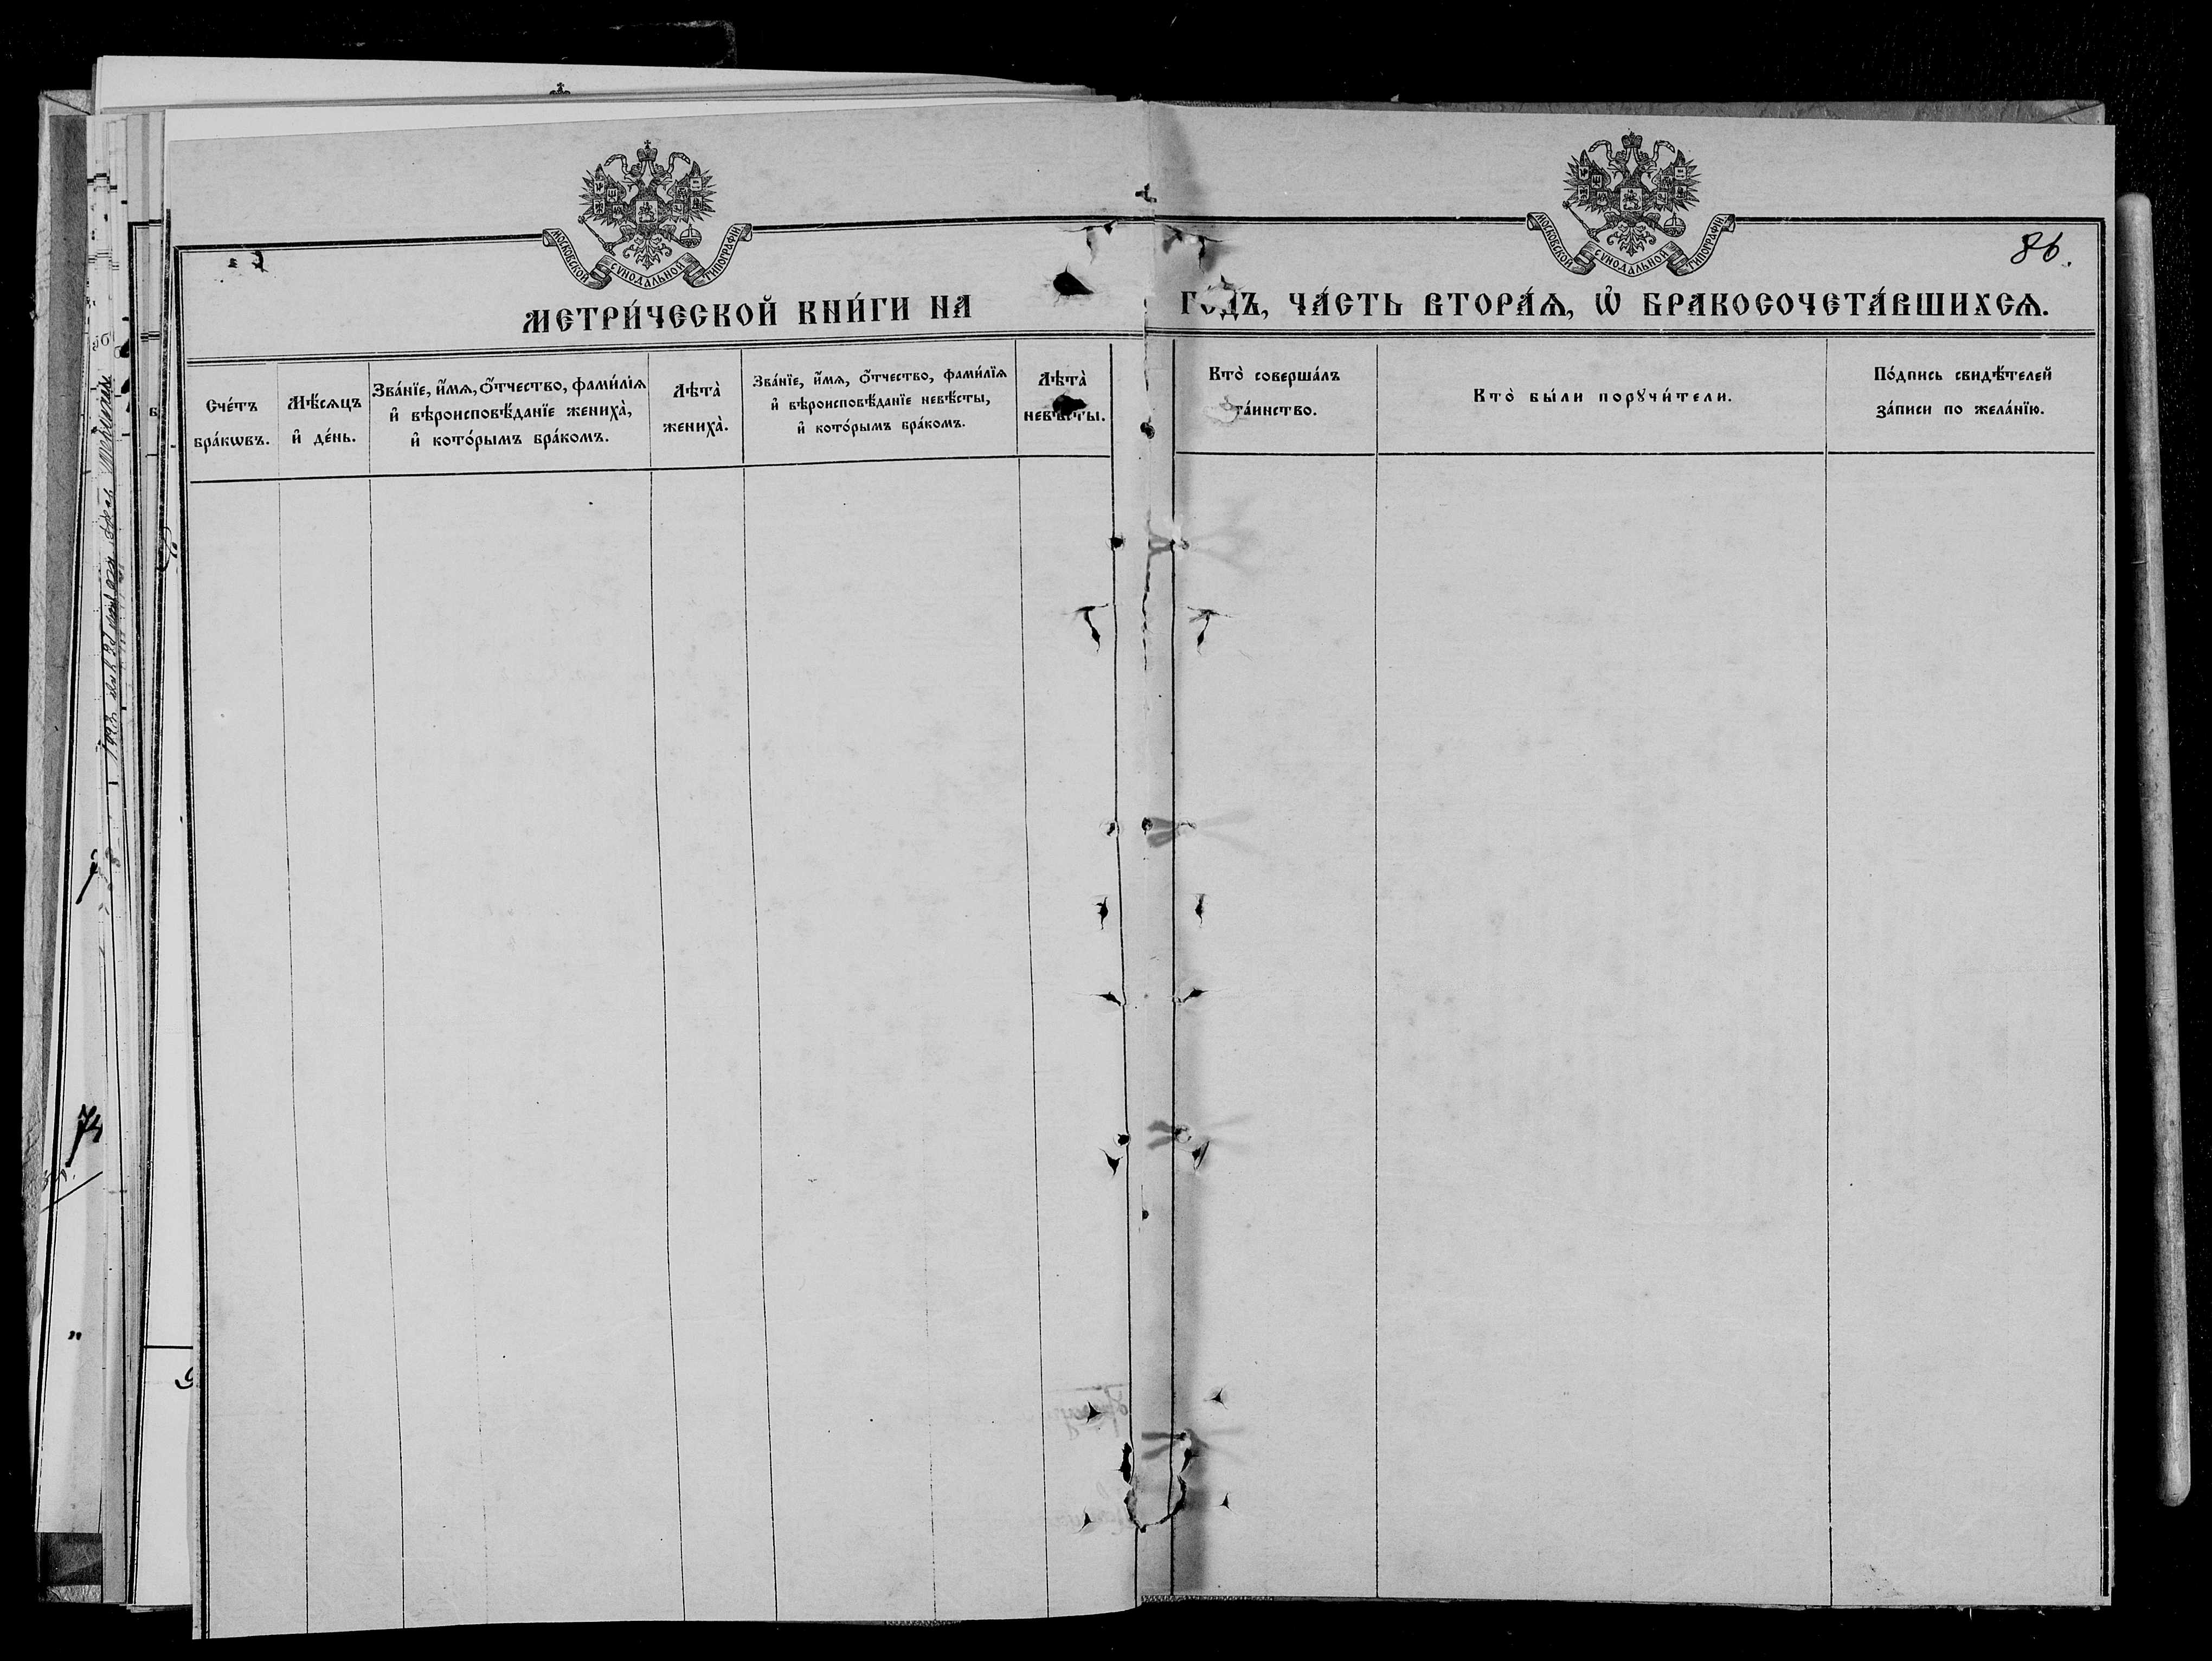 МОСКОВСКОЙ СѴНОДАЛЬНОЙ ТИПОГРАФІИ
МОСКОВСКОЙ СѴНОДАЛЬНОЙ ТИПОГРАФІИ
86.
МЕТРИ́ЧЕСКОЙ КНИ́ГИ НА ГОДЪ, ЧА́СТЬ ВТОРА́Ѧ, Ѽ БРАКОСОЧЕТА́ВШИХСѦ.
Сче́тъ
бра́кѡвъ.
Мѣ́сѧцъ
и҆ де́нь.
Зва́нїе, и҆́мѧ, ѻ҆́тчество, фами́лїѧ
и҆ вѣроисповѣ́данїе жениха̀,
и҆ кото́рымъ бра́комъ.
Лѣта̀
жениха̀.
Зва́нїе, и҆́мѧ, ѻ҆́тчество, фами́лїѧ
и҆ вѣроисповѣ́данїе невѣ́сты,
и҆ кото́рымъ бра́комъ.
Лѣта̀
невѣ́сты.
Кто̀ соверша́лъ
та́инство.
Кто̀ бы́ли порꙋчи́тели.
По́дпись свидѣ́телей
за́писи по жела́нїю.